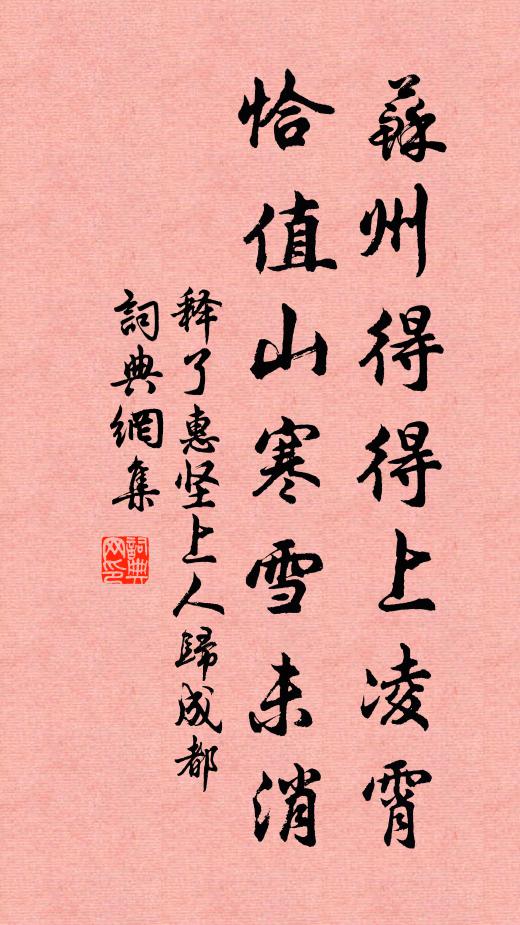 蘇州得得上凌霄
恰值山寒雪未消
释了惠坚上人歸成都
詞典網集
詞典网印